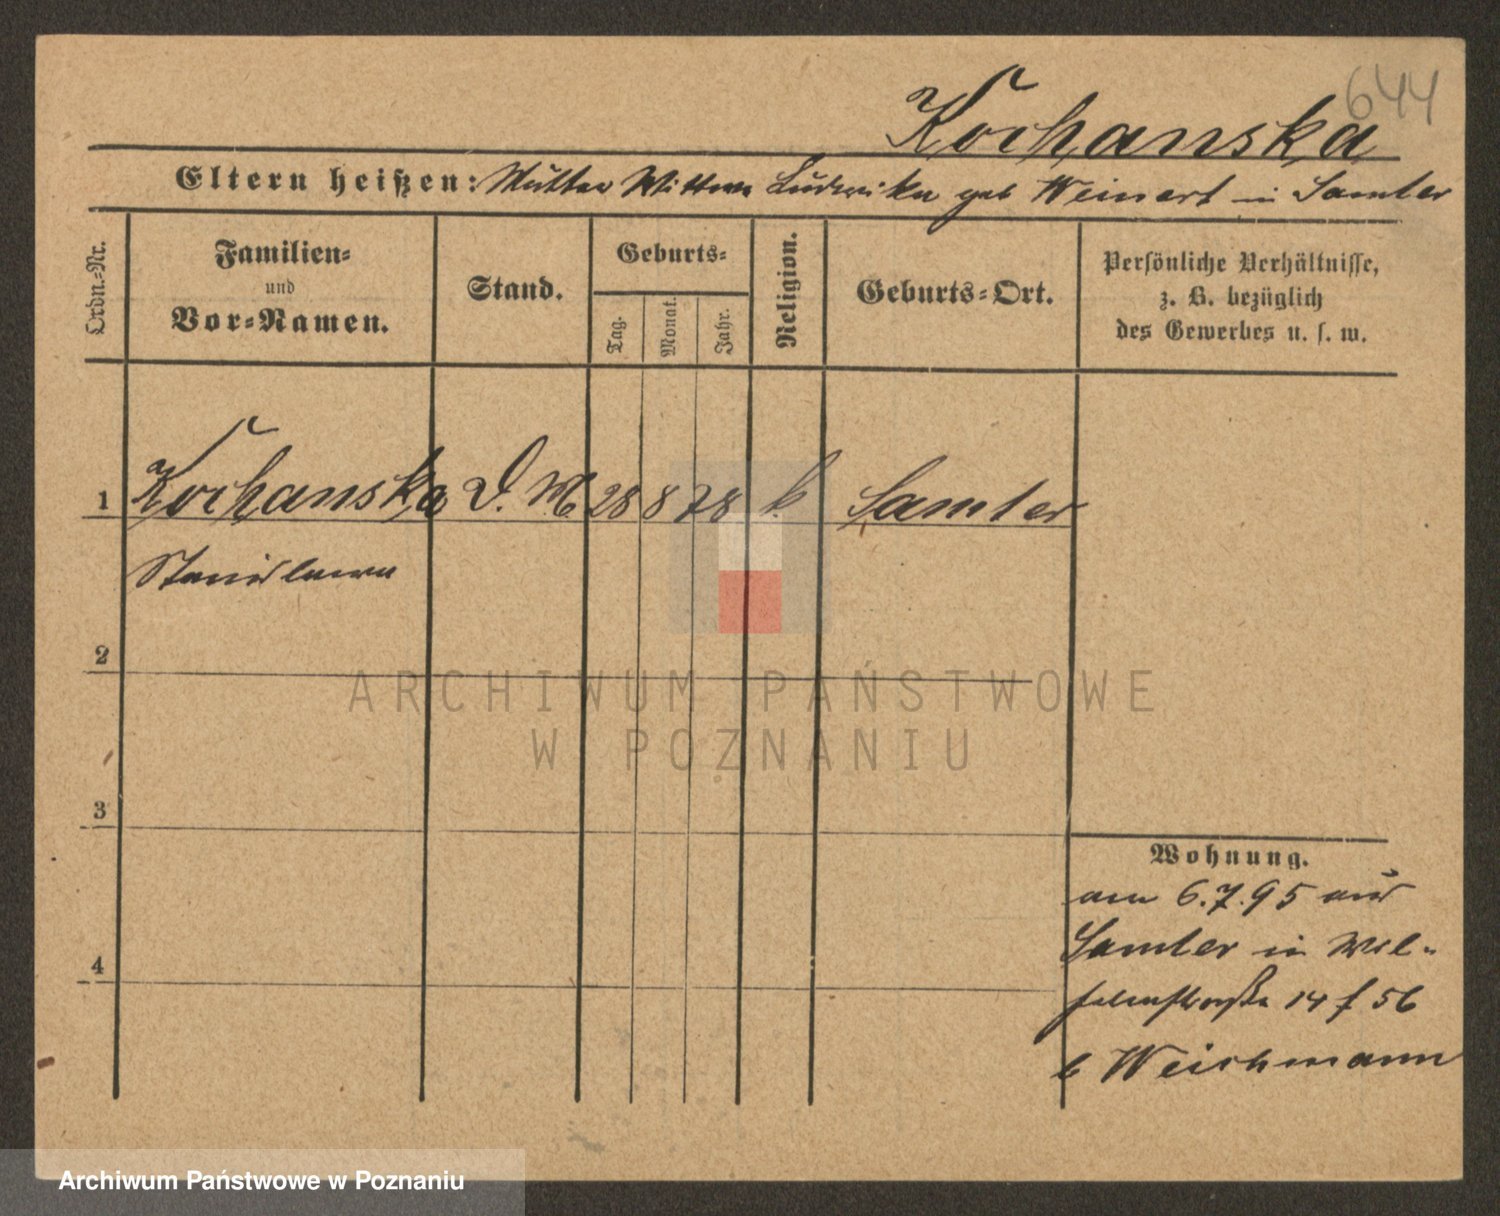 644
Kochanska
Eltern heißen: Mutter Wittwe Ludwika geb Weinert in Samter
Ordn.-Nr.
Familien-
und
Vor-Namen.
Stand.
Geburts-
Tag.
Monat.
Jahr.
Religion.
Geburts-Ort.
Persönliche Verhältnisse,
z. B. bezüglich
des Gewerbes u. s. w.
1 Kochanska D. M. 28 8 78 k. Samter
Stanislawa
2
3
4
Wohnung.
am 6.7.95 aus
Samter in Wil-
helmstraße 14 f 56
b Weichmann
ARCHIWUM PAŃSTWOWE
W POZNANIU
Archiwum Państwowe w Poznaniu